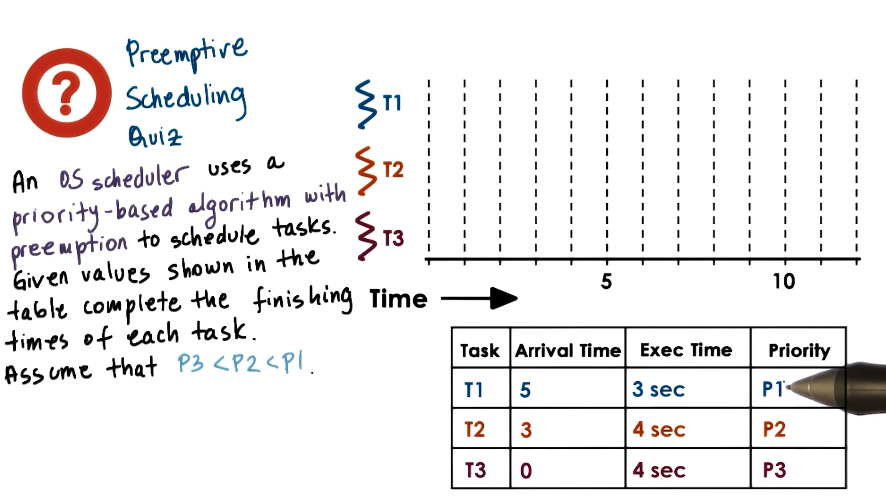 ?
Preemptive
Scheduling
Quiz
An OS scheduler uses a
priority-based algorithm with
preemption to schedule tasks.
Given values shown in the
table complete the finishing
times of each task.
Assume that P3 < P2 < P1.
T1
T2
T3
5 10
Time
Task Arrival Time Exec Time Priority
T1 5 3 sec P1
T2 3 4 sec P2
T3 0 4 sec P3